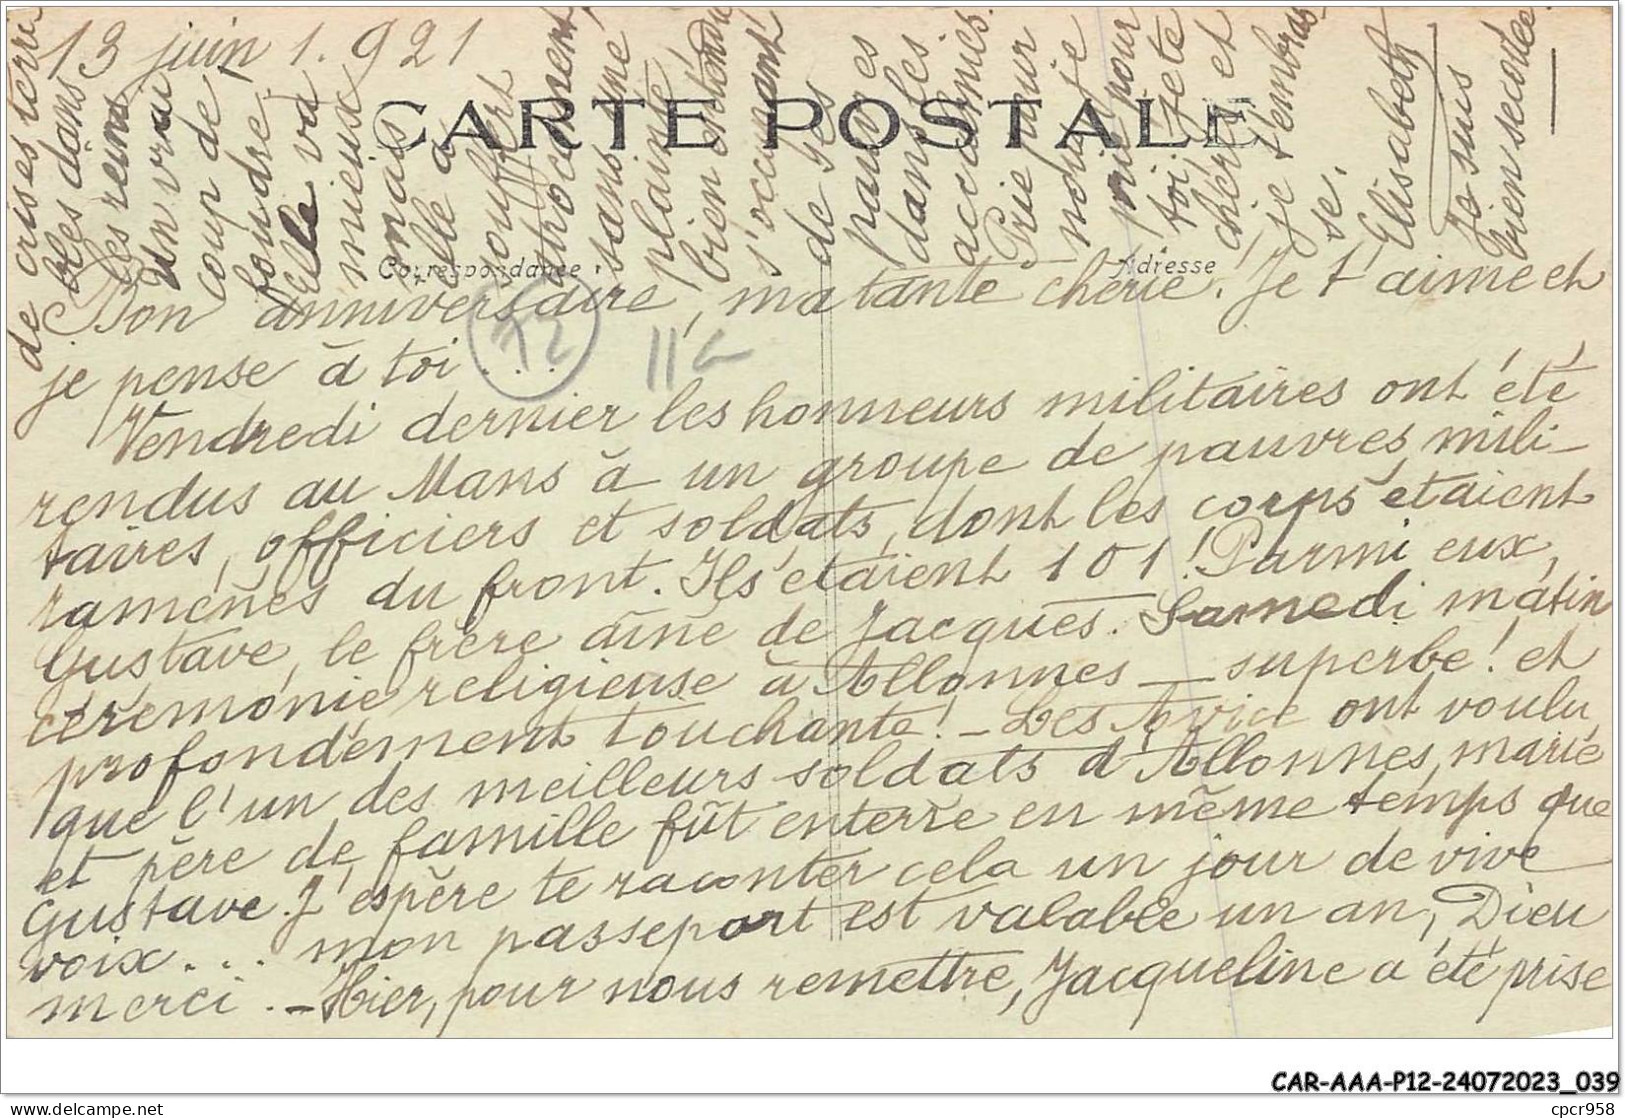 13 juin 1.921
CARTE POSTALE
Correspondance
Adresse
Bon anniversaire, ma tante chérie! Je t'aime et
je pense à toi...
12
11G
Vendredi dernier les honneurs militaires ont été
rendus au Mans à un groupe de pauvres mili-
taires, officiers et soldats, dont les corps étaient
ramenés du front. Ils étaient 101! Parmi eux,
Gustave, le frère aîné de Jacques. Samedi matin
cérémonie religieuse à Allonnes — superbe! et
profondément touchante! - Les Avice ont voulu
que l'un des meilleurs soldats d'Allonnes, marié
et père de famille fût enterré en même temps que
Gustave. J'espère te raconter cela un jour de vive
voix... mon passeport est valable un an, Dieu
merci. - Hier, pour nous remettre, Jacqueline a été prise
de crises terri
bles dans
les reins
un vrai
coup de
foudre.
Elle va
mieux
mais
elle a
souffert
atrocement,
sans une
plainte
bien entendu
s'occupant
de ses
pauvres
dans les
accalmies.
Prie pour
moi je
prie pour
toi, je te
chéris et
je t'embras-
se.
Elisabeth
Je suis
bien secouée.
CAR-AAA-P12-24072023_039
delcampe.net
cpcr958